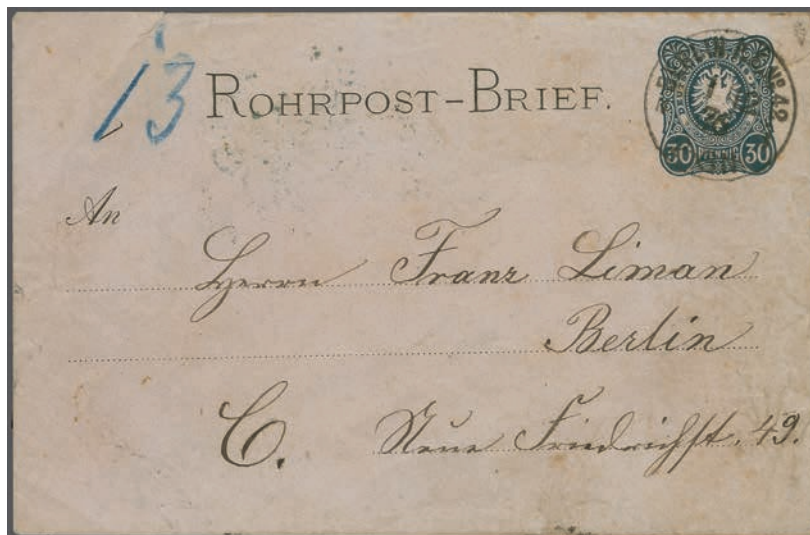 13
ROHRPOST-BRIEF.
30 PFENNIG 30
An
Herrn Franz Liman
Berlin
C. Neue Friedrichst. 49.